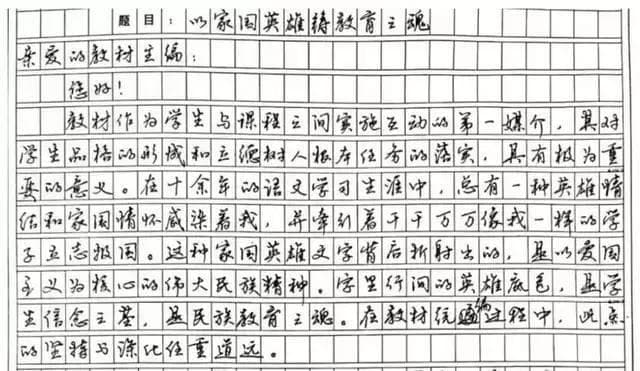 题目：以家国英雄铸教育之魂
亲爱的教材主编：
您好！
教材作为学生与课程之间实施互动的第一媒介，其对
学生品格的形成和立德树人根本任务的落实，具有极为重
要的意义。在十余年的语文学习生涯中，总有一种英雄情
结和家国情怀感染着我，并牵引着千千万万像我一样的学
子立志报国。这种家国英雄文字背后折射出的，是以爱国
主义为核心的伟大民族精神。字里行间的英雄底色，是学
生信念之基，是民族教育之魂。在教材统编过程中，此点
的坚持与深化任重道远。